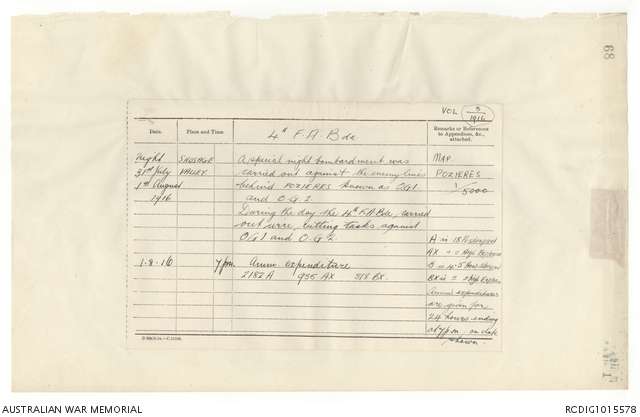 89
VOL 5/1916
Date. Place and Time 4th F A Bde Remarks or References to Appendices, &c., attached.
Night SAUSAGE A special night bombardment was MAP
31st July VALLEY carried out against the enemy lines POZIERES
1st August behind POZIERES known as OG1 1/5000
1916 and O.G.2
During the day the 4th F.A Bde, carried
out wire, cutting tasks against
OG1 and O.G 2 A is 18 Pr shrapnel
AX " " High Explosive
1.8.16 7pm Amm expenditure B is 4.5 How
2182 A 955 AX BX. BX is " " High Explos
Ammn expenditures
are given for
24 hours ending
at 7pm on date
shown.
AUSTRALIAN WAR MEMORIAL
RCDIG1015578